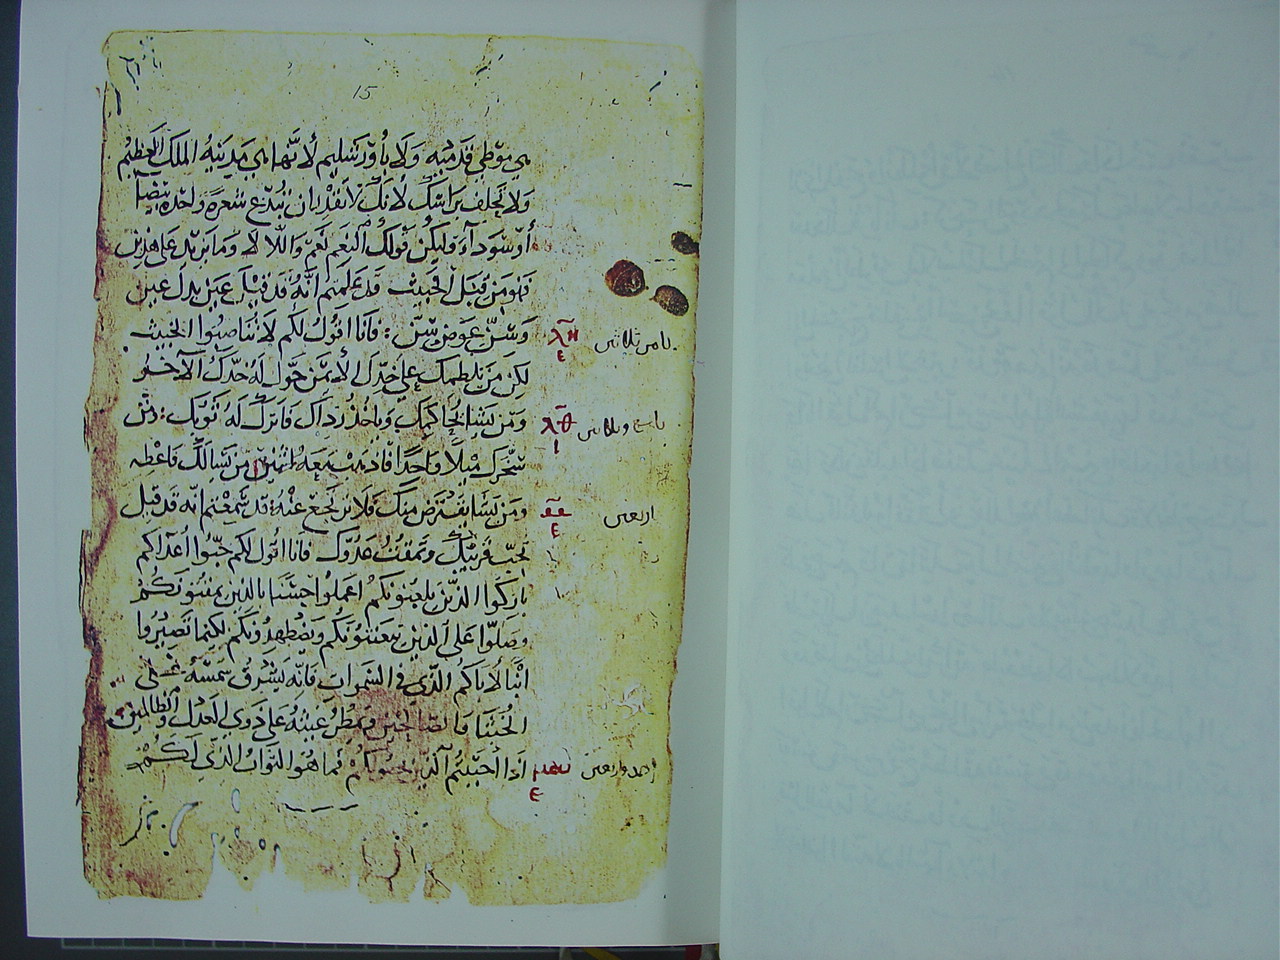 15
هي موطي قدميه ولا بأورشليم لأنها هي مدينة الملك العظيم
ولا تحلف براسك لانك لا تقدر ان تبدع شعرة واحدة بيضا
أو سودآء وليكن قولكم النعم نعم واللا لا وما يزيد على هذين
فهو من قبل الخبيث قد علمتم أنه قد قيل عين بدل عين
وسن عوض سن : فأنا اقول لكم لا تناصبوا الخبيث
ثامن ثلاثين
لكن من يلطمك على خدك الأيمن حول له خدك الآخر
ومن يشا يحاكمك وياخذ رداك فاترك له ثوبك : ومن
تاسعا وثلاثين
سخرك ميلا واحدا فاذهب معه اثنين من سالك فاعطه
ومن يشا يقترض منك فلا ترجع عنه : قد سمعتم انه قد قيل
اربعين
تحب قريبك وتمقت عدوك فانا اقول لكم حبوا أعداكم
باركوا الذين يلعنونكم اعملوا حسنا بالذين يمقتونكم
وصلوا على الذين يعنتونكم ويضطهدونكم لكيما تصيروا
ابنا لأباكم الذي في السموات فانه يشرق شمسه على
الخبثا والصالحين ويمطر غيثه على ذوي العدل والظالمين
اذا أحببتم الذين يحبوكم فما هو الثواب الذي لكم
احد واربعين